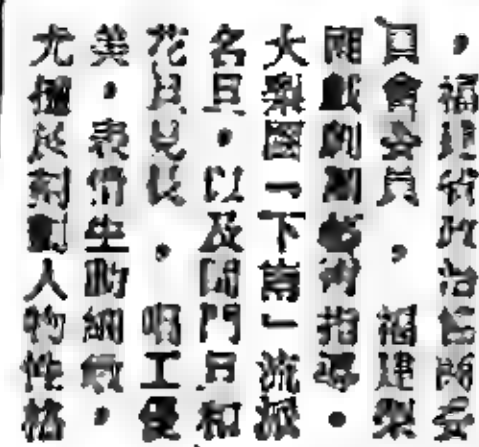 ，福建省政治協商委
員會會員，福建梨
園戲劇團藝術指導。
大梨園「下南」流派
名旦，以及閨門旦和
花旦見長，唱工優
美，表情生動細緻，
尤擅於刻劃人物性格